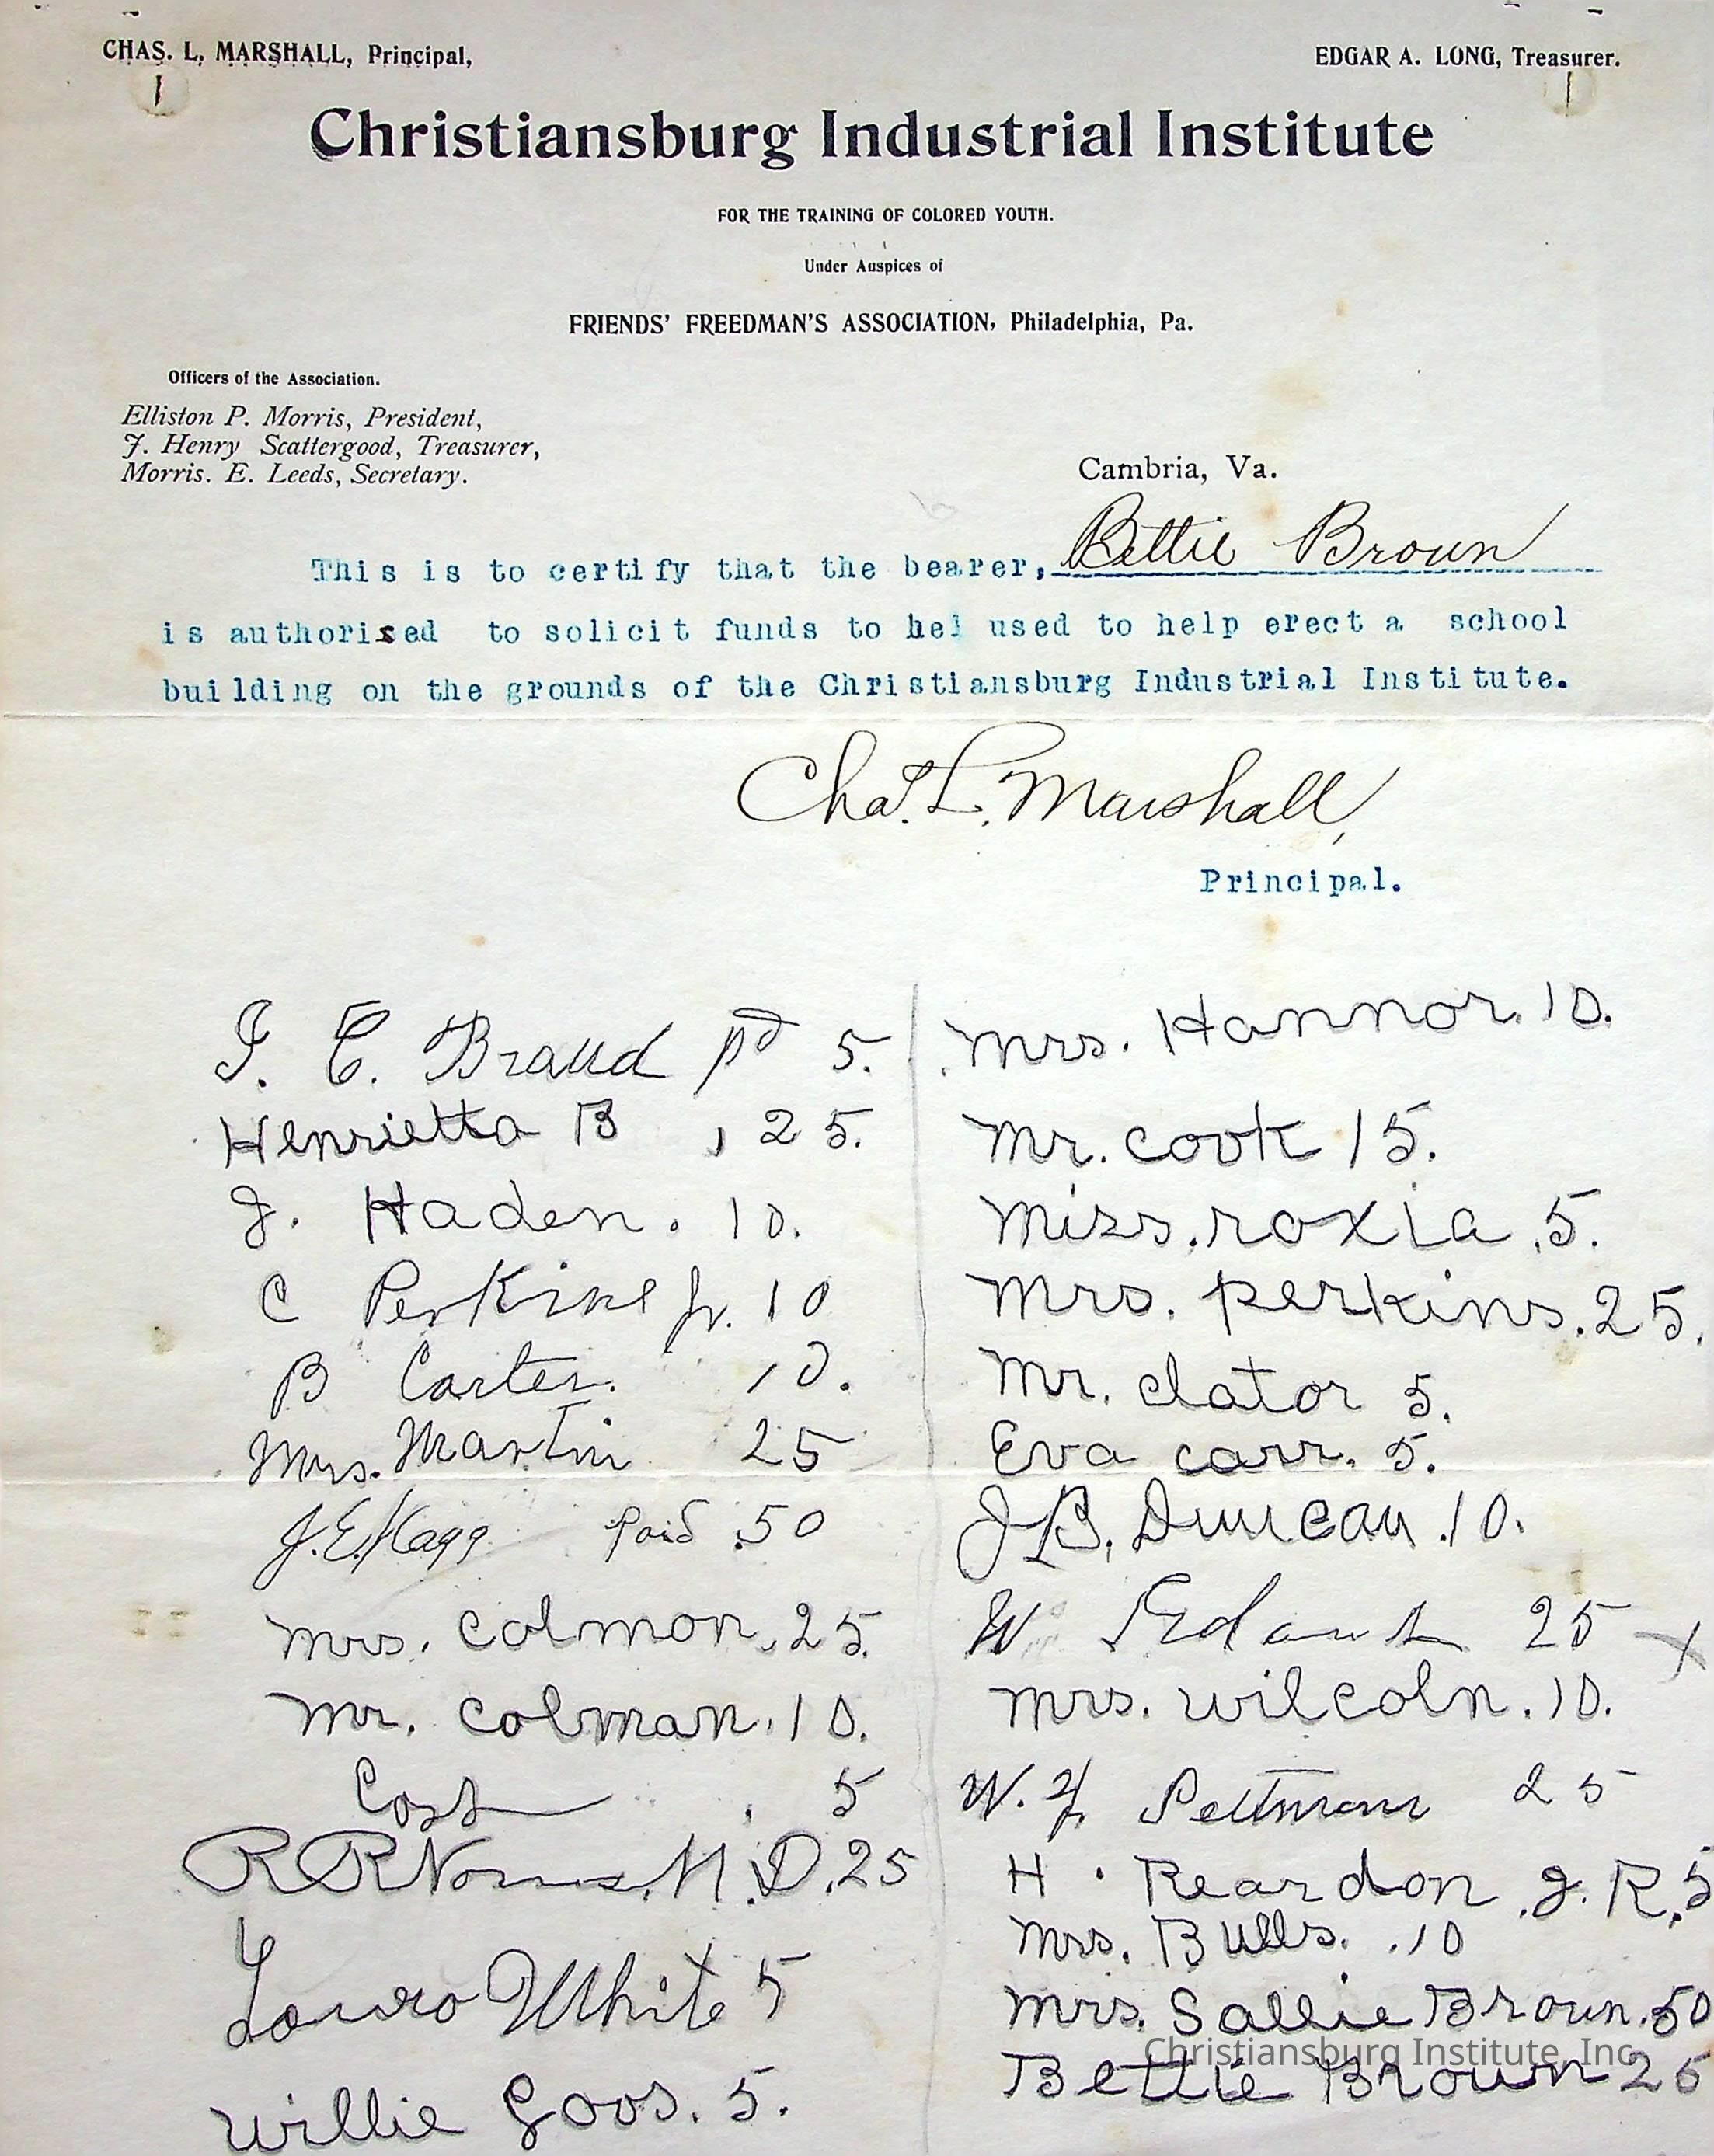 CHAS. L. MARSHALL, Principal,
EDGAR A. LONG, Treasurer.
Christiansburg Industrial Institute
FOR THE TRAINING OF COLORED YOUTH.
Under Auspices of
FRIENDS' FREEDMAN'S ASSOCIATION, Philadelphia, Pa.
Officers of the Association.
Elliston P. Morris, President,
J. Henry Scattergood, Treasurer,
Morris. E. Leeds, Secretary.
Cambria, Va.
This is to certify that the bearer, Bettie Broun
is authorised to solicit funds to be used to help erect a school
building on the grounds of the Christiansburg Industrial Institute.
Chas. L. Marshall,
Principal.
C. Braud pd 5.
Henrietta B , 25.
J. Haden. 10.
C Perkins Jr. 10
B Carter. 10.
Mrs. Martin 25
J.E. Kagg Paid .50
mrs. Colmon. 25.
mr. Colman. 10.
Cash 5
R R M.D. 25
White 5
Willie Goos. 5.
mrs. Hannor. 10.
mr. cook 15.
miss. roxia .5.
mrs. perkins. 25.
mr. clator 5.
Eva carr. 5.
J B. Duncan .10.
W 25
mrs. wilcoln. 10.
W. 25
H. Reardon J. R. 5
mrs. Bulls. .10
mrs. Sallie Broun. 50
Bettie Broun 25
Christiansburg Institute, Inc.